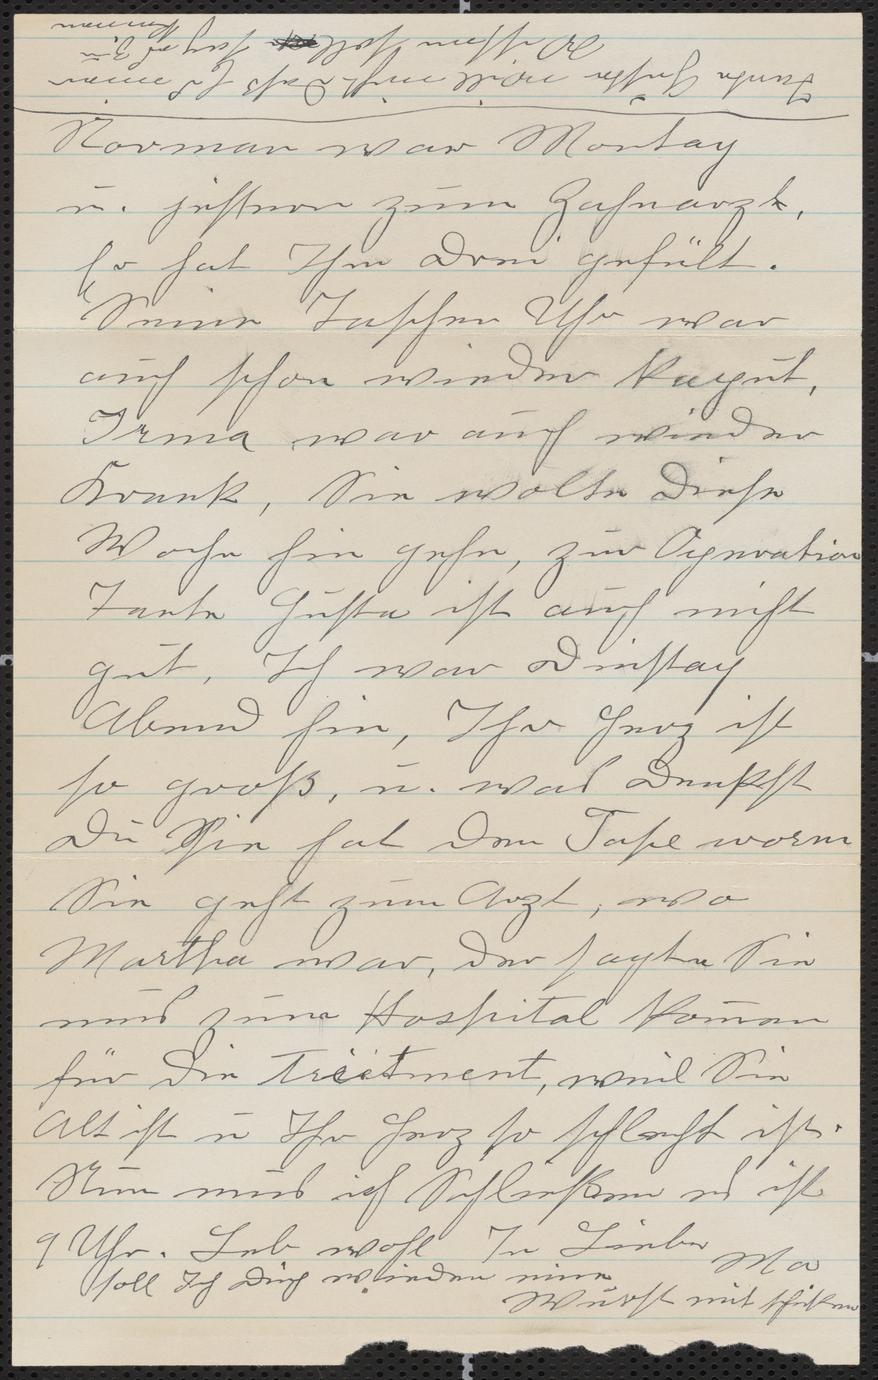 Tante Guste will nicht daß es einer
Wissen soll sag es Ihr
Norman war Montag
u. gestern zum Zahnarzt,
Er hat Ihm Drei gefült.
Seine Taschen Uhr war
auch schon wieder kaput,
Irma war auch wieder
Krank, Sie wolte Diese
Woche hin gehn, zur Operation
Tante Guste ist auch nicht
gut, Ich war Dinstag
Abend hin, Ihr Herz ist
so groß, u. was Denkst
Du Sie hat den Tape worm
Sie geht zum Arzt, wo
Martha war, der sagte Sie
mus zum Hospital komen
für Die Treetment, weil Sie
Alt ist u Ihr Herz so schlecht ist.
Nun mus ich Schließen es ist
9 Uhr. Leb wohl In Liebe Ma
soll Ich Dich wieder eine
Wurst mit schicken